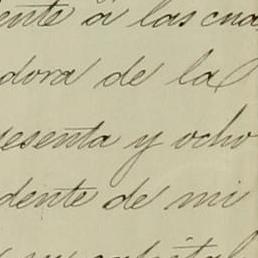 ente á las cua
dora de la
esenta y ocho
dente de mi
su capital